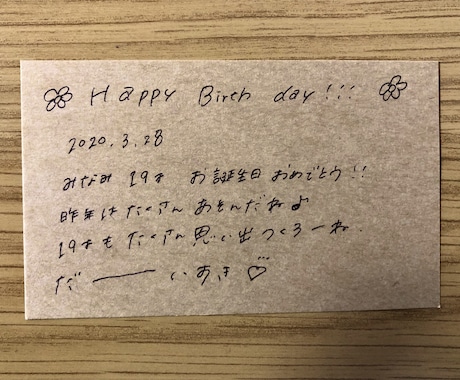 Happy Birth day!!!
2020.3.28
みなみ 19才 お誕生日 おめでとう!!
昨年はたくさん あそんだね♪
19才も たくさん 思い出つくろーね.
だ――いすき♡